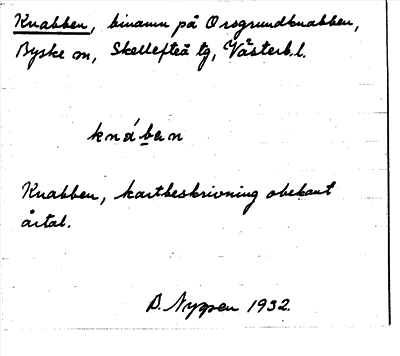 Knabben, binamn på Orrgrundknabben,
Byske sn, Skellefteå tg, Västerb.l.
knábᴇn
Knabben, kartbeskrivning obekant
årtal.
D. Nyppen 1932.